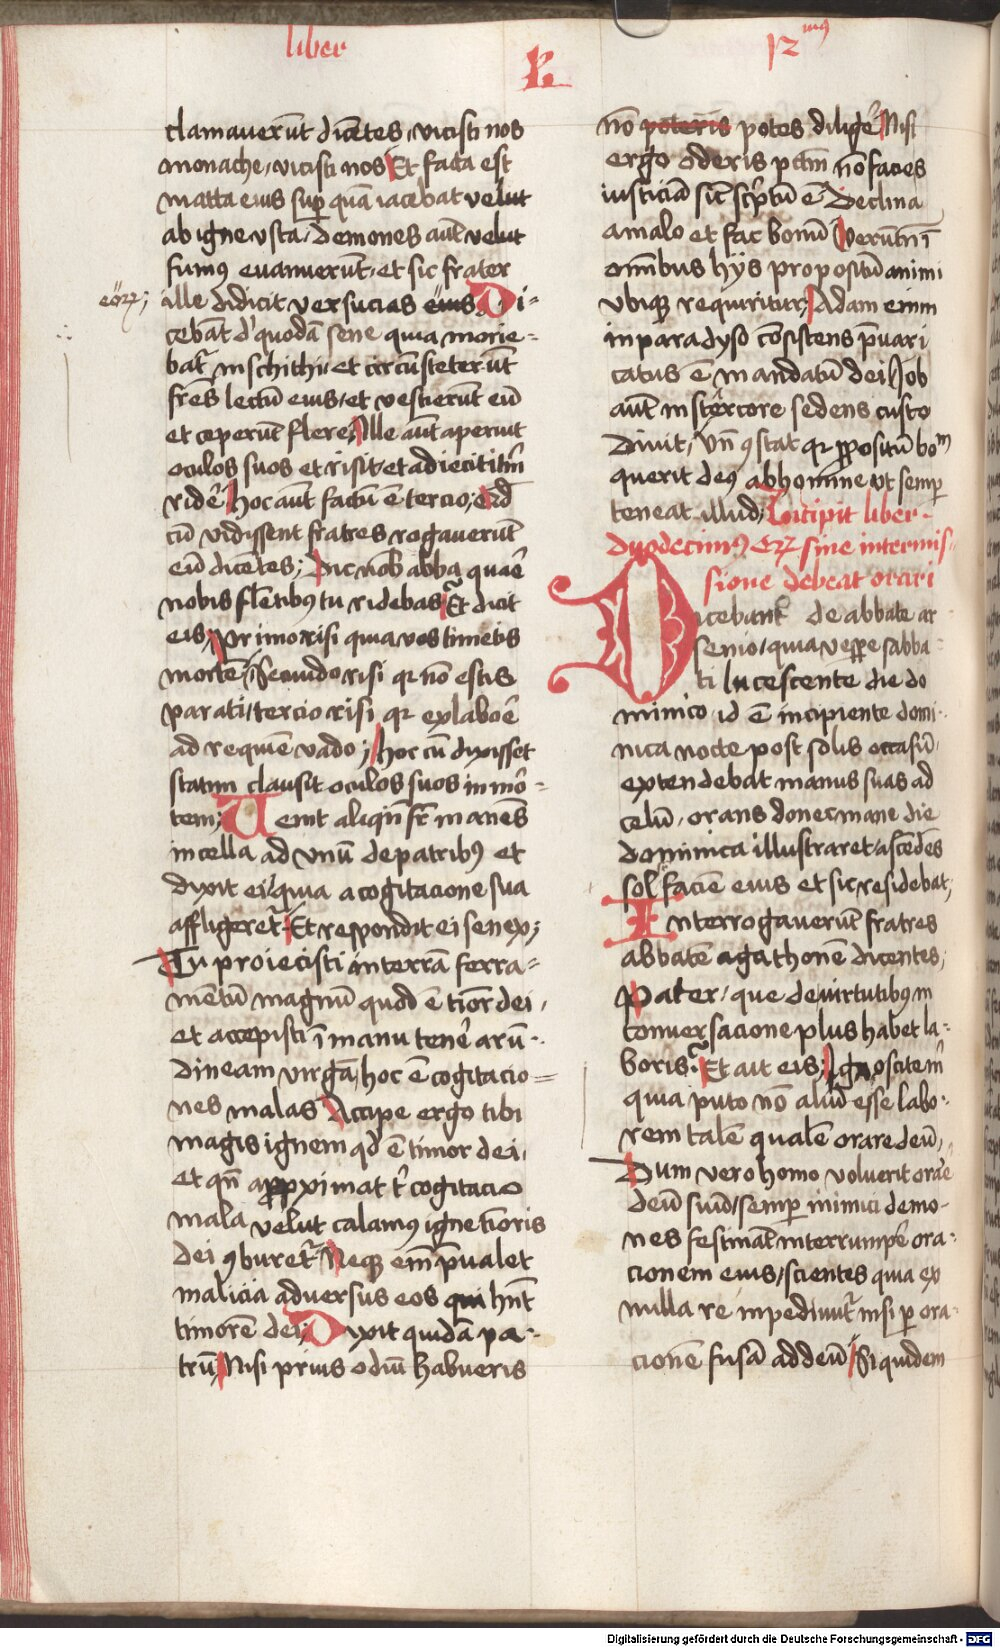 liber
R
12mus
clamauerūt diētes, vicisti nos
monache, vicisti nos Et facta est
matta eius sup quā iacebat velut
ab igne vsta, demones aūt velut
fumꝰ euanuerūt, et sic frater
eoꝝ;
ille didicit versucias eius Di-
cebāt d' quodā sene quia morie-
batr in schithi, et circūsteterūt
frēs lectū eius, et vestierūt eū
et ceperūt flere, Ille aūt aperuit
oculos suos et risit, et adiecit itm̄
ridē, hoc aūt factū ē tercio, qd
cū vidissent fratres rogauerūt
eū dicētes; Dic nob abba quaē
nobis flētibꝰ tu ridebas Et dicit
eis, Primo risi quia vos timetis
mortē, Secundo risi qꝛ nō estis
parati, tercio risi qꝛ ex laboē
ad requiē vado; hoc cū dixisset
statim clausit oculos suos in mō-
tem; Uenit aliqn̄ fr̄ manēs
in cella ad vnū de patribꝰ et
dixit ei, quia a cogitacione sua
affligeretr Et respondit ei senex;
Tu proiecisti in terrā ferra-
mētū magnū quod ē tiōr dei,
et accepisti ī manu tenē arū-
dineam virgā, hoc ē cogitacio=
nes malas Accipe ergo tibi
magis ignem qd ē timor dei,
et qn̄ appximat t' cogitacio
mala velut calamꝰ igne tioris
dei ꝯburetr Neqꝫ em̄ pualet
malicia aduersus eos qui hn̄t
timorē dei; Dixit quidā pa-
trū, Nisi prius odiū habueris
nō poteris potes diligē Nisi
ergo oderis pctm̄ nō facies
iusticiā sic scptū ē Declina
a malo et fac bonū Uerūtn̄ ī
omībus hijs propositū animi
vbiqꝫ requiritur; Adam enim
in paradyso cōsistens pūari
catus ē mandatū dei, Job
aūt in stercore sedens custo
diuit, Vn̄ ꝯstat qꝛ ppositū bom
querit deꝰ ab homine vt semp
teneat illud; Incipit liber
duodecimꝰ qꝛ sine intermis-
sione debeat orari
Dicebant de abbate ar
senio, quia vespe sabba-
ti lucescente die do
minico, id ē incipiente domi-
nica nocte post solis occasū,
extendebat manus suas ad
celū, orans donec mane die
dominica illustraret ascēdēs
sol faciē eius et sic residebat,
Interrogauerūt fratres
abbatē agathonē dicentes,
Pater, que de virtutibꝰ in
conuersacione plus habet la-
boris. Et ait eis; Ignoscitem̄
quia puto nō aliud esse labo-
rem talē qualē orare deū,
Dum vero homo voluerit oraē
deū suū, semp inimici demo-
nes festināt interrumpē ora-
cionem eius, scientes quia ex
nulla re impediūtr nisi p ora-
cionē fusā ad deū, Siquidem
Digitalisierung gefördert durch die Deutsche Forschungsgemeinschaft - DFG